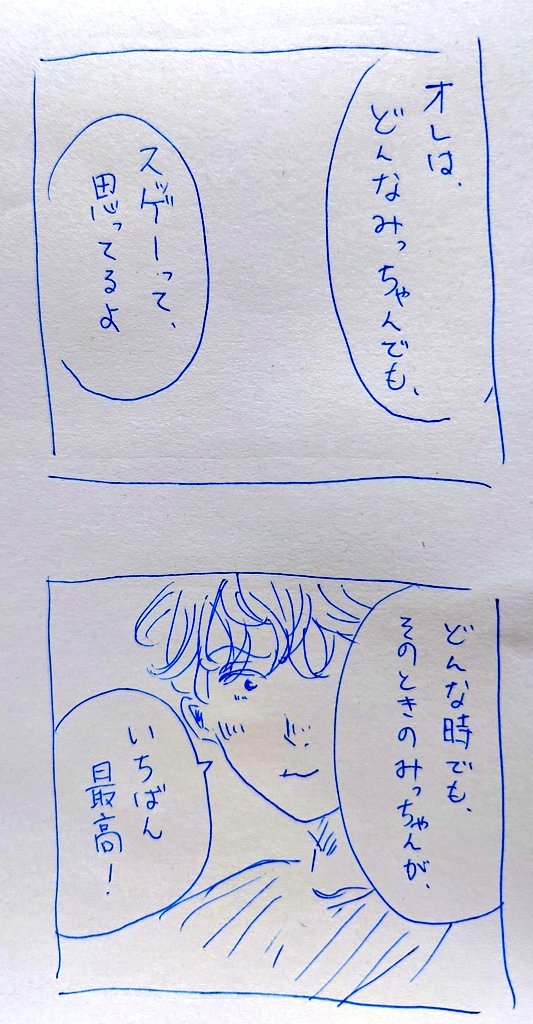 オレは、
どんなみっちゃんでも、
スッゲーって、
思ってるよ
どんな時でも、
そのときのみっちゃんが、
いちばん
最高！